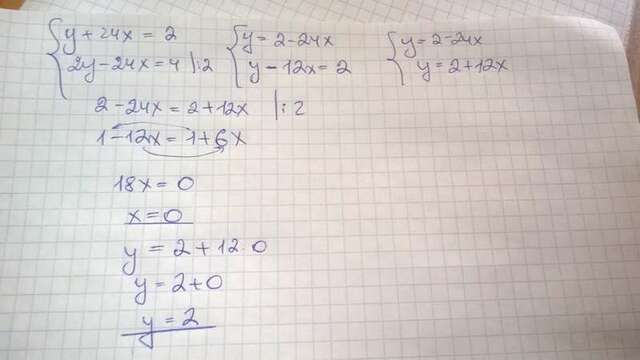 { y + 24x = 2 { y = 2 - 24x { y = 2 - 24x
2y - 24x = 4 |:2 y - 12x = 2 y = 2 + 12x
2 - 24x = 2 + 12x |:2
1 - 12x = 1 + 6x
18x = 0
x = 0
y = 2 + 12·0
y = 2 + 0
y = 2